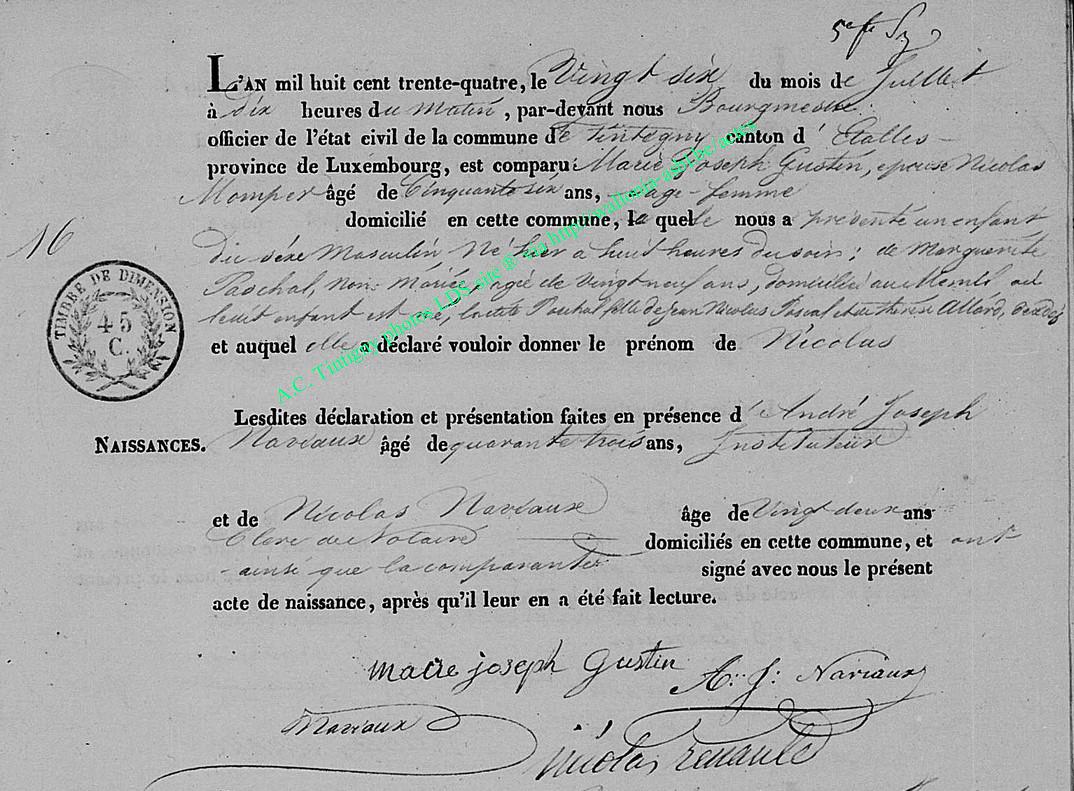 L'AN mil huit cent trente-quatre, le Vingt six du mois de Juillet
à Dix heures du Matin, par-devant nous Bourgmestre
officier de l'état civil de la commune de tintigny canton d' Etalles
province de Luxembourg, est comparu: Marie Joseph Gustin, epouse Nicolas
Momper âgé de Cinquante six ans, sage-femme
domicilié en cette commune, La quelle nous a présenté un enfant
16
du séxe Masculin Né hier à huit heures du soir; de Marguerite
Paschal, Non Mariée, agée de Vingt neuf ans, domiciliée au
enfant est né, fille de Jean Nicolas Pascal et Thérèse Allard,
TIMBRE DE DIMENSION
45
C.
et auquel elle a déclaré vouloir donner le prénom de Nicolas
A.C. Tintigny photos LDS site ® via http://wallonia-asbl.be/actes
Lesdites déclaration et présentation faites en présence d' André Joseph
NAISSANCES. Naviaux âgé de quarante trois ans, Instituteur
et de Nicolas Naviaux âge de Vingt deux ans
Clerc de Notaire domiciliés en cette commune, et ont
ainsi que la comparante signé avec nous le présent
acte de naissance, après qu'il leur en a été fait lecture.
marie joseph Gustin A. J. Naviaux
Naviaux
nicolas renauld